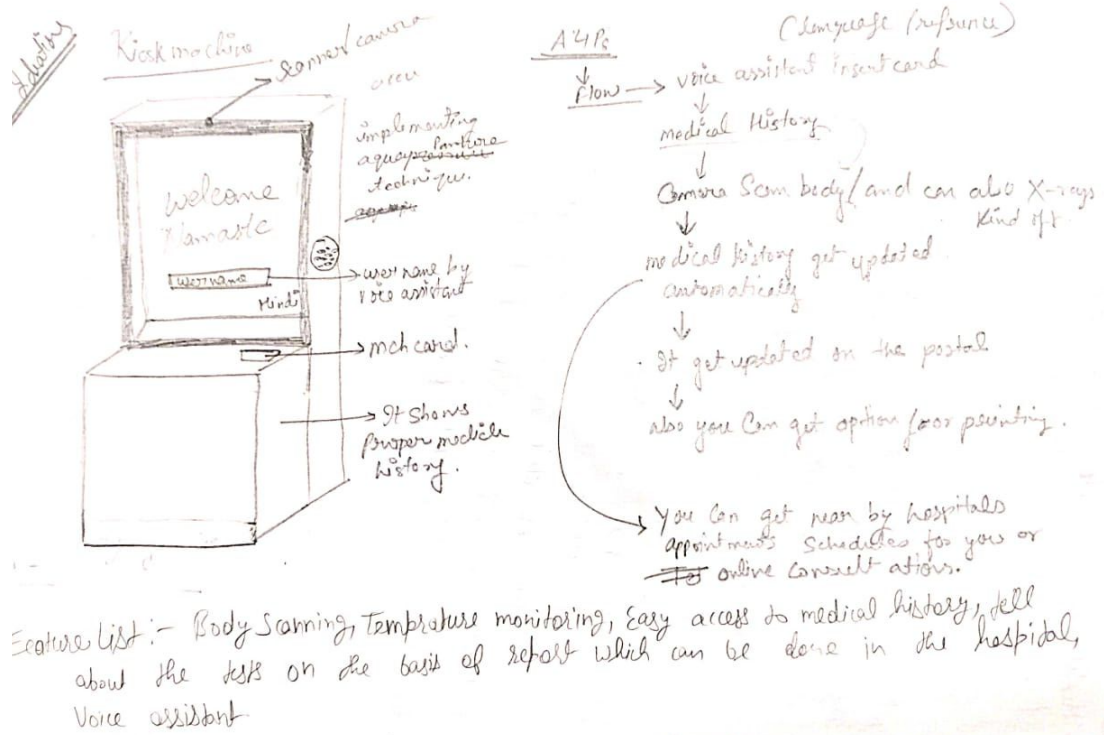 Ideation
Kiosk machine
scanner/camera
accu
implementing
aquapressure Puncture
technique.
welcome
Namaste
username
Hindi
→ username by
voice assistant
→ mch card.
→ It shows
Proper medicle
history.
A4Ps
(language (refrence)
↓
Flow → voice assistant insert card
↓
medical History
↓
Camera Scan body/and can also X-rays
kind of.
↓
medical history get updated
automatically
↓
It get updated on the portal
↓
also you Can get option for printing.
You Can get near by hospitals
appointments schedules for you or
online Consultations.
Feature List:- Body Scanning, Temprature monitoring, Easy access to medical history, tell
about the tests on the basis of report which can be done in the hospital,
Voice assistant